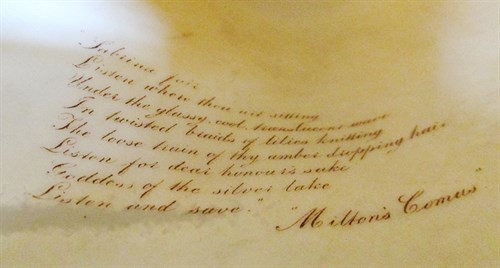 Sabrina fair
Listen where thou art sitting
Under the glassy, cool, translucent wave
In twisted braids of lilies knitting
The loose train of thy amber dropping hair
Listen for dear honour's sake
Goddess of the silver lake
Listen and save."
"Milton's Comus"